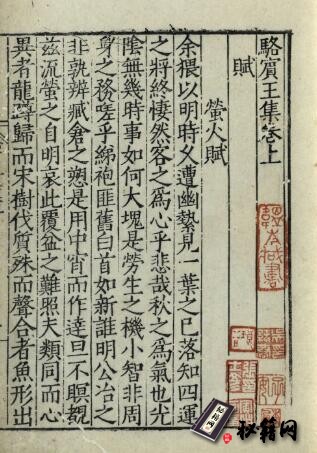 駱賓王集卷上
賦
螢火賦
余猥以明時久遭幽縶見一葉之已落知四運
之將終悽然客之爲心乎悲哉秋之爲氣也光
陰無幾時事如何大塊是勞生之機小智非周
身之務嗟乎綈袍匪舊白首如新誰明公冶之
非孰辨臧倉之愬是用中宵而作達旦不瞑覩
茲流螢之自明哀此覆盆之難照夫類同而心
異者龍蹲歸而宋樹伐質殊而聲合者魚形出
秘籍网